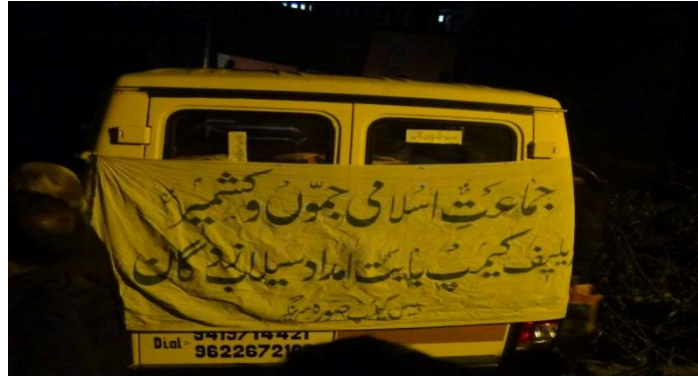 جماعتِ اسلامی جموّں و کشمیر
ریلیف کیمپ بابت امداد سیلاب زدگان
بیس کیمپ صورہ سرینگر
Dial:- 9419714421
962267210